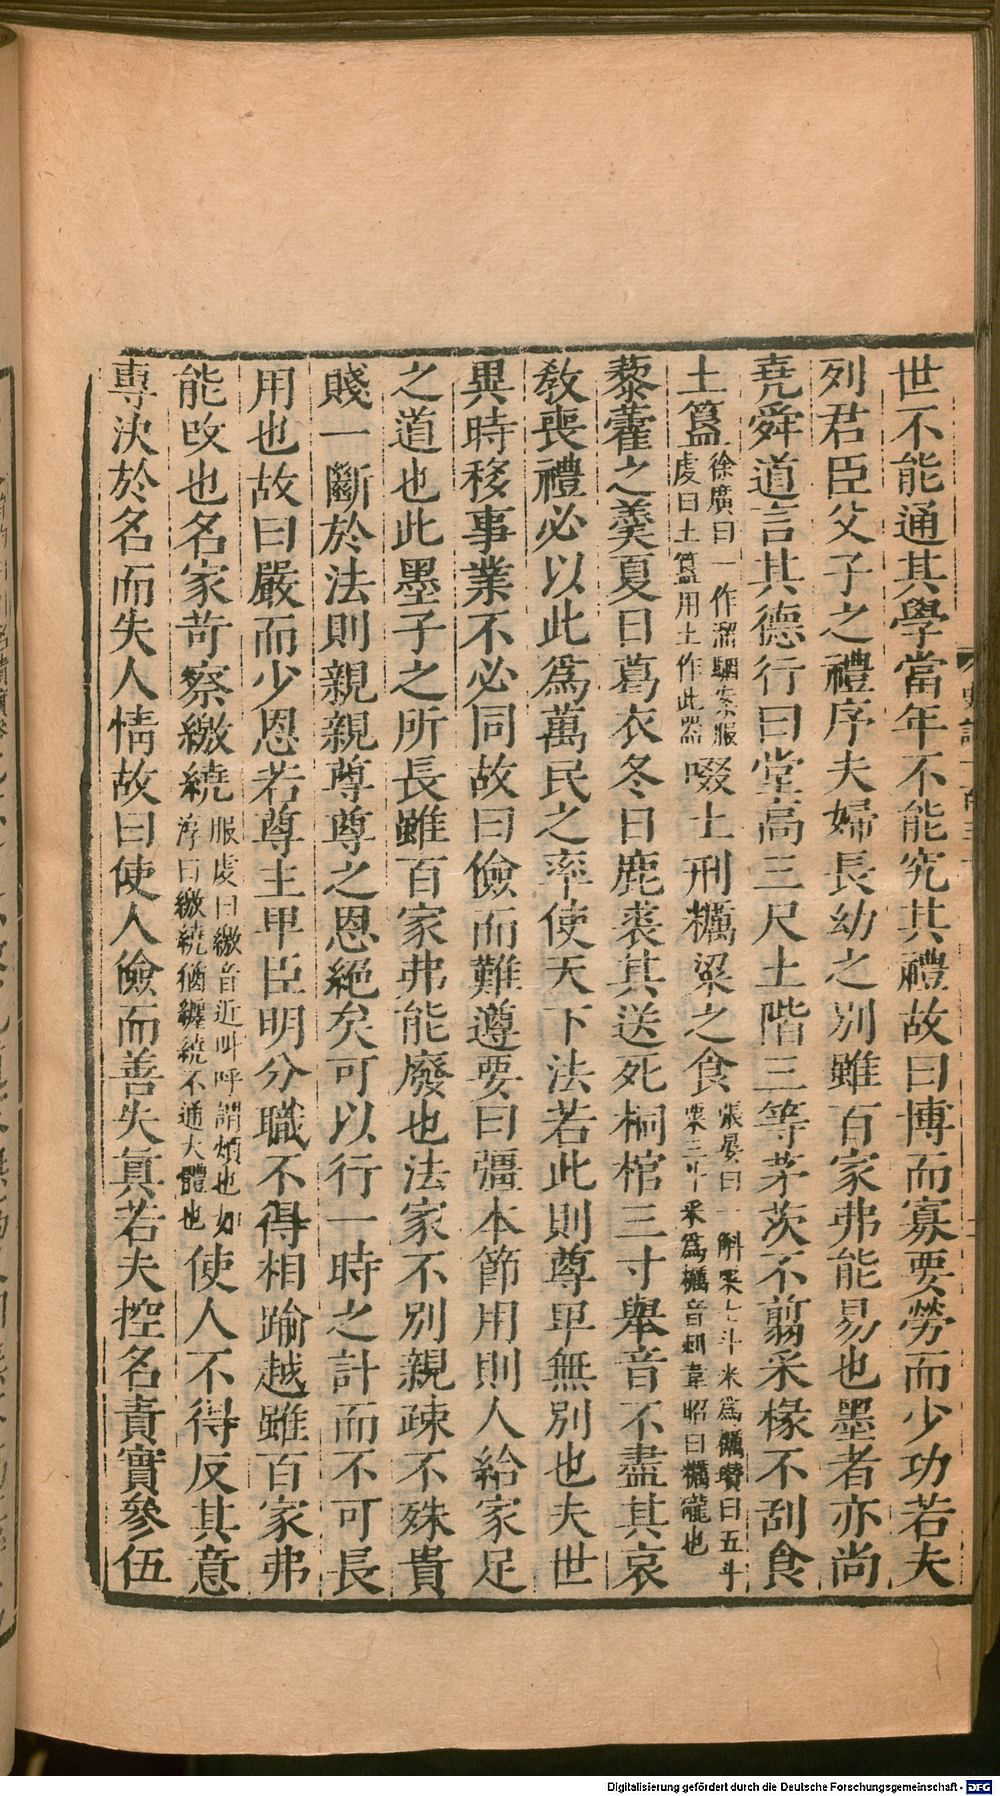 世不能通其學當年不能究其禮故曰博而寡要勞而少功若夫
列君臣父子之禮序夫婦長幼之別雖百家弗能易也墨者亦尚
堯舜道言其德行曰堂高三尺土階三等茅茨不翦采椽不刮食
土簋徐廣曰一作溜駰案服虔曰土簋用土作此器啜土刑糲粱之食張晏曰一斛粟七斗米爲糲瓚曰五斗粟三斗米爲糲音剌韋昭曰糲䶪也
藜藿之羹夏日葛衣冬日鹿裘其送死桐棺三寸舉音不盡其哀
敎喪禮必以此爲萬民之率使天下法若此則尊卑無別也夫世
異時移事業不必同故曰儉而難遵要曰彊本節用則人給家足
之道也此墨子之所長雖百家弗能廢也法家不別親疎不殊貴
賤一斷於法則親親尊尊之恩絕矣可以行一時之計而不可長
用也故曰嚴而少恩若尊主卑臣明分職不得相踰越雖百家弗
能改也名家苛察繳繞服虔曰繳音近叫呼謂煩也如淳曰繳繞猶纏繞不通大體也使人不得反其意
專決於名而失人情故曰使人儉而善失眞若夫控名責實參伍
Digitalisierung gefördert durch die Deutsche Forschungsgemeinschaft - DFG